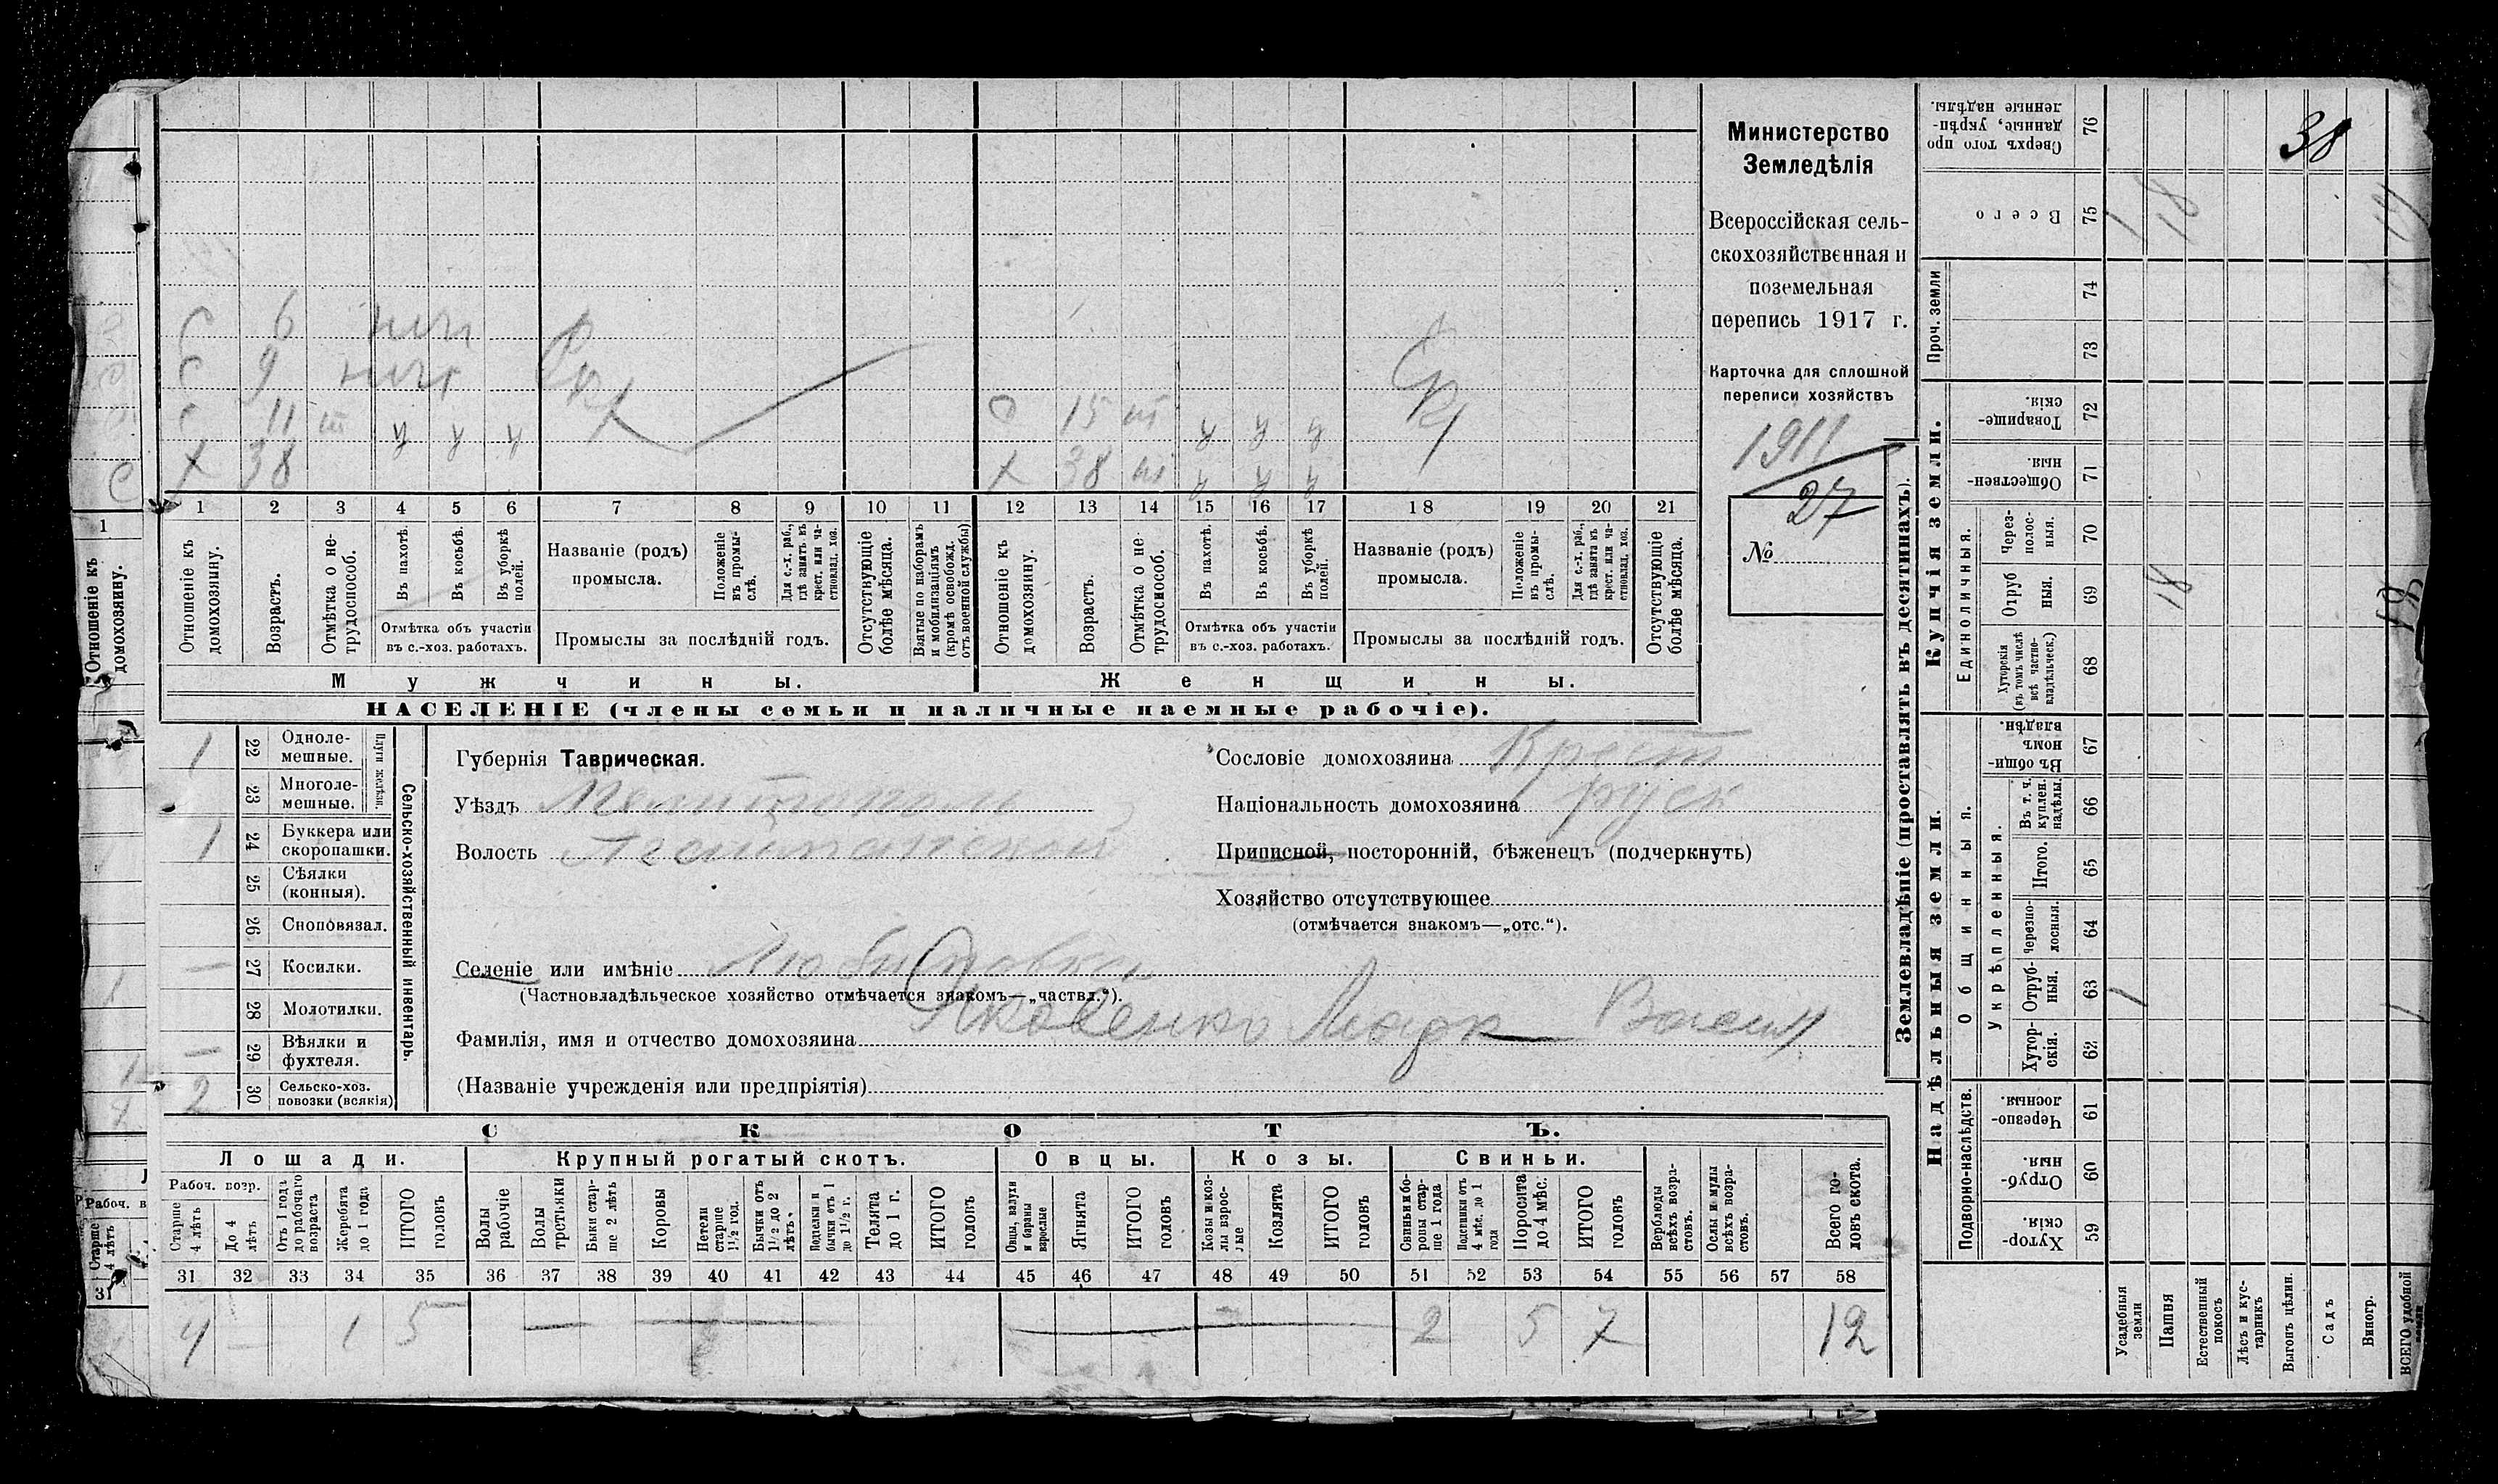 38
Министерство
Земледѣлія
Всероссійская сель-
скохозяйственная и
поземельная
перепись 1917 г.
Карточка для сплошной
переписи хозяйствъ
1911
27
№
С 6 нгч
С 9 нгч
С 11 ш у у у
Х 38
О 15 ш у у у
Х 38 ш у у у
1 2 3 4 5 6 7 8 9 10 11 12 13 14 15 16 17 18 19 20 21
Отношеніе къ домохозяину.
Возрастъ.
Отмѣтка о не-трудоспособ.
Въ пахотѣ.
Въ косьбѣ.
Въ уборкѣ полей.
Отмѣтка объ участіи
въ с.-хоз. работахъ.
Названіе (родъ)
промысла.
Положеніе въ промы-слѣ.
Для с.-х. раб., гдѣ занятъ въ крест. или ча-стновлад. хоз.
Промыслы за послѣдній годъ.
Отсутствующіе болѣе мѣсяца.
Взятые по наборамъ и мобилизаціямъ (кромѣ освобожд. отъ военной службы)
Отношеніе къ домохозяину.
Возрастъ.
Отмѣтка о не-трудоспособ.
Въ пахотѣ.
Въ косьбѣ.
Въ уборкѣ полей.
Отмѣтка объ участіи
въ с.-хоз. работахъ.
Названіе (родъ)
промысла.
Положеніе въ промы-слѣ.
Для с.-х. раб., гдѣ занята въ крест. или ча-стновлад. хоз.
Промыслы за послѣдній годъ.
Отсутствующіе болѣе мѣсяца.
Мужчины. Женщины.
НАСЕЛЕНІЕ (члены семьи и наличные наемные рабочіе).
1
Отношеніе къ домохозяину.
Сельско-хозяйственный инвентарь.
Плуги желѣзн.
1 22 Одноле-мешные.
23 Многоле-мешные.
1 24 Буккера или скоропашки.
25 Сѣялки (конныя).
26 Сноповязал.
— 27 Косилки.
28 Молотилки.
— 29 Вѣялки и фухтеля.
2 30 Сельско-хоз. повозки (всякія)
Губернія Таврическая.
Уѣздъ Мелитополь
Волость
Сословіе домохозяина Крест
Національность домохозяина руск
Приписной, посторонній, бѣженецъ (подчеркнуть)
Хозяйство отсутствующее
(отмѣчается знакомъ—„отс.“).
Селеніе или имѣніе Любимовка
(Частновладѣльческое хозяйство отмѣчается знакомъ—„частвл.“).
Фамилія, имя и отчество домохозяина Яковенко Марк Васил
(Названіе учрежденія или предпріятія)
СКОТЪ.
Лошади. Крупный рогатый скотъ. Овцы. Козы. Свиньи.
Рабоч. возр.
Старше 4 лѣтъ
До 4 лѣтъ
Отъ 1 года до рабочаго возраста
Жеребята до 1 года
ИТОГО головъ
Волы рабочіе
Волы третьяки
Быки стар-ше 2 лѣтъ
Коровы
Нетели старше 1½ год.
Бычки отъ 1½ до 2 лѣтъ.
Поделки и бычки отъ 1 до 1½ г.
Телята до 1 г.
ИТОГО головъ
Овцы, валухи и бараны взрослые
Ягнята
ИТОГО головъ
Козы и коз-лы взрос-лые
Козлята
ИТОГО головъ
Свиньи и бо-ровы стар-ше 1 года
Подсвинки отъ 4 мѣс. до 1 года
Поросята до 4 мѣс.
ИТОГО головъ
Верблюды всѣхъ возра-стовъ.
Ослы и мулы всѣхъ возра-стовъ.
Всего го-ловъ скота.
31 32 33 34 35 36 37 38 39 40 41 42 43 44 45 46 47 48 49 50 51 52 53 54 55 56 57 58
4 — 1 5 — — — 2 5 7 12
Рабоч. в
Старше 4 лѣтъ
31
Землевладѣніе (проставлять въ десятинахъ).
Купчія земли.
Надѣльныя земли.
Сверхъ того про-данные, укрѣп-ленные надѣлы. 76
Всего 75 1 18 19
Проч. земли 74 73
Товарище-скія. 72
Обществен-ныя. 71
Единоличныя.
Через-полос-ныя. 70
Отруб-ныя. 69 18 18
Хуторскія (въ томъ числѣ всѣ частно-владѣльческ.) 68
Общинныя.
Въ общи-номъ владѣн. 67
Укрѣпленныя.
Въ т. ч. куплен. надѣлы. 66
Итого. 65
Черезпо-лосныя. 64
Отруб-ныя. 63 1 1
Хутор-скія. 62
Подворно-наслѣдств.
Черезпо-лосныя. 61
Отруб-ныя. 60
Хутор-скія. 59
Усадебныя земли
Пашня
Естественный покосъ
Лѣсъ и кус-тарникъ
Выгонъ цѣлин.
Садъ
Виногр.
ВСЕГО удобной земли